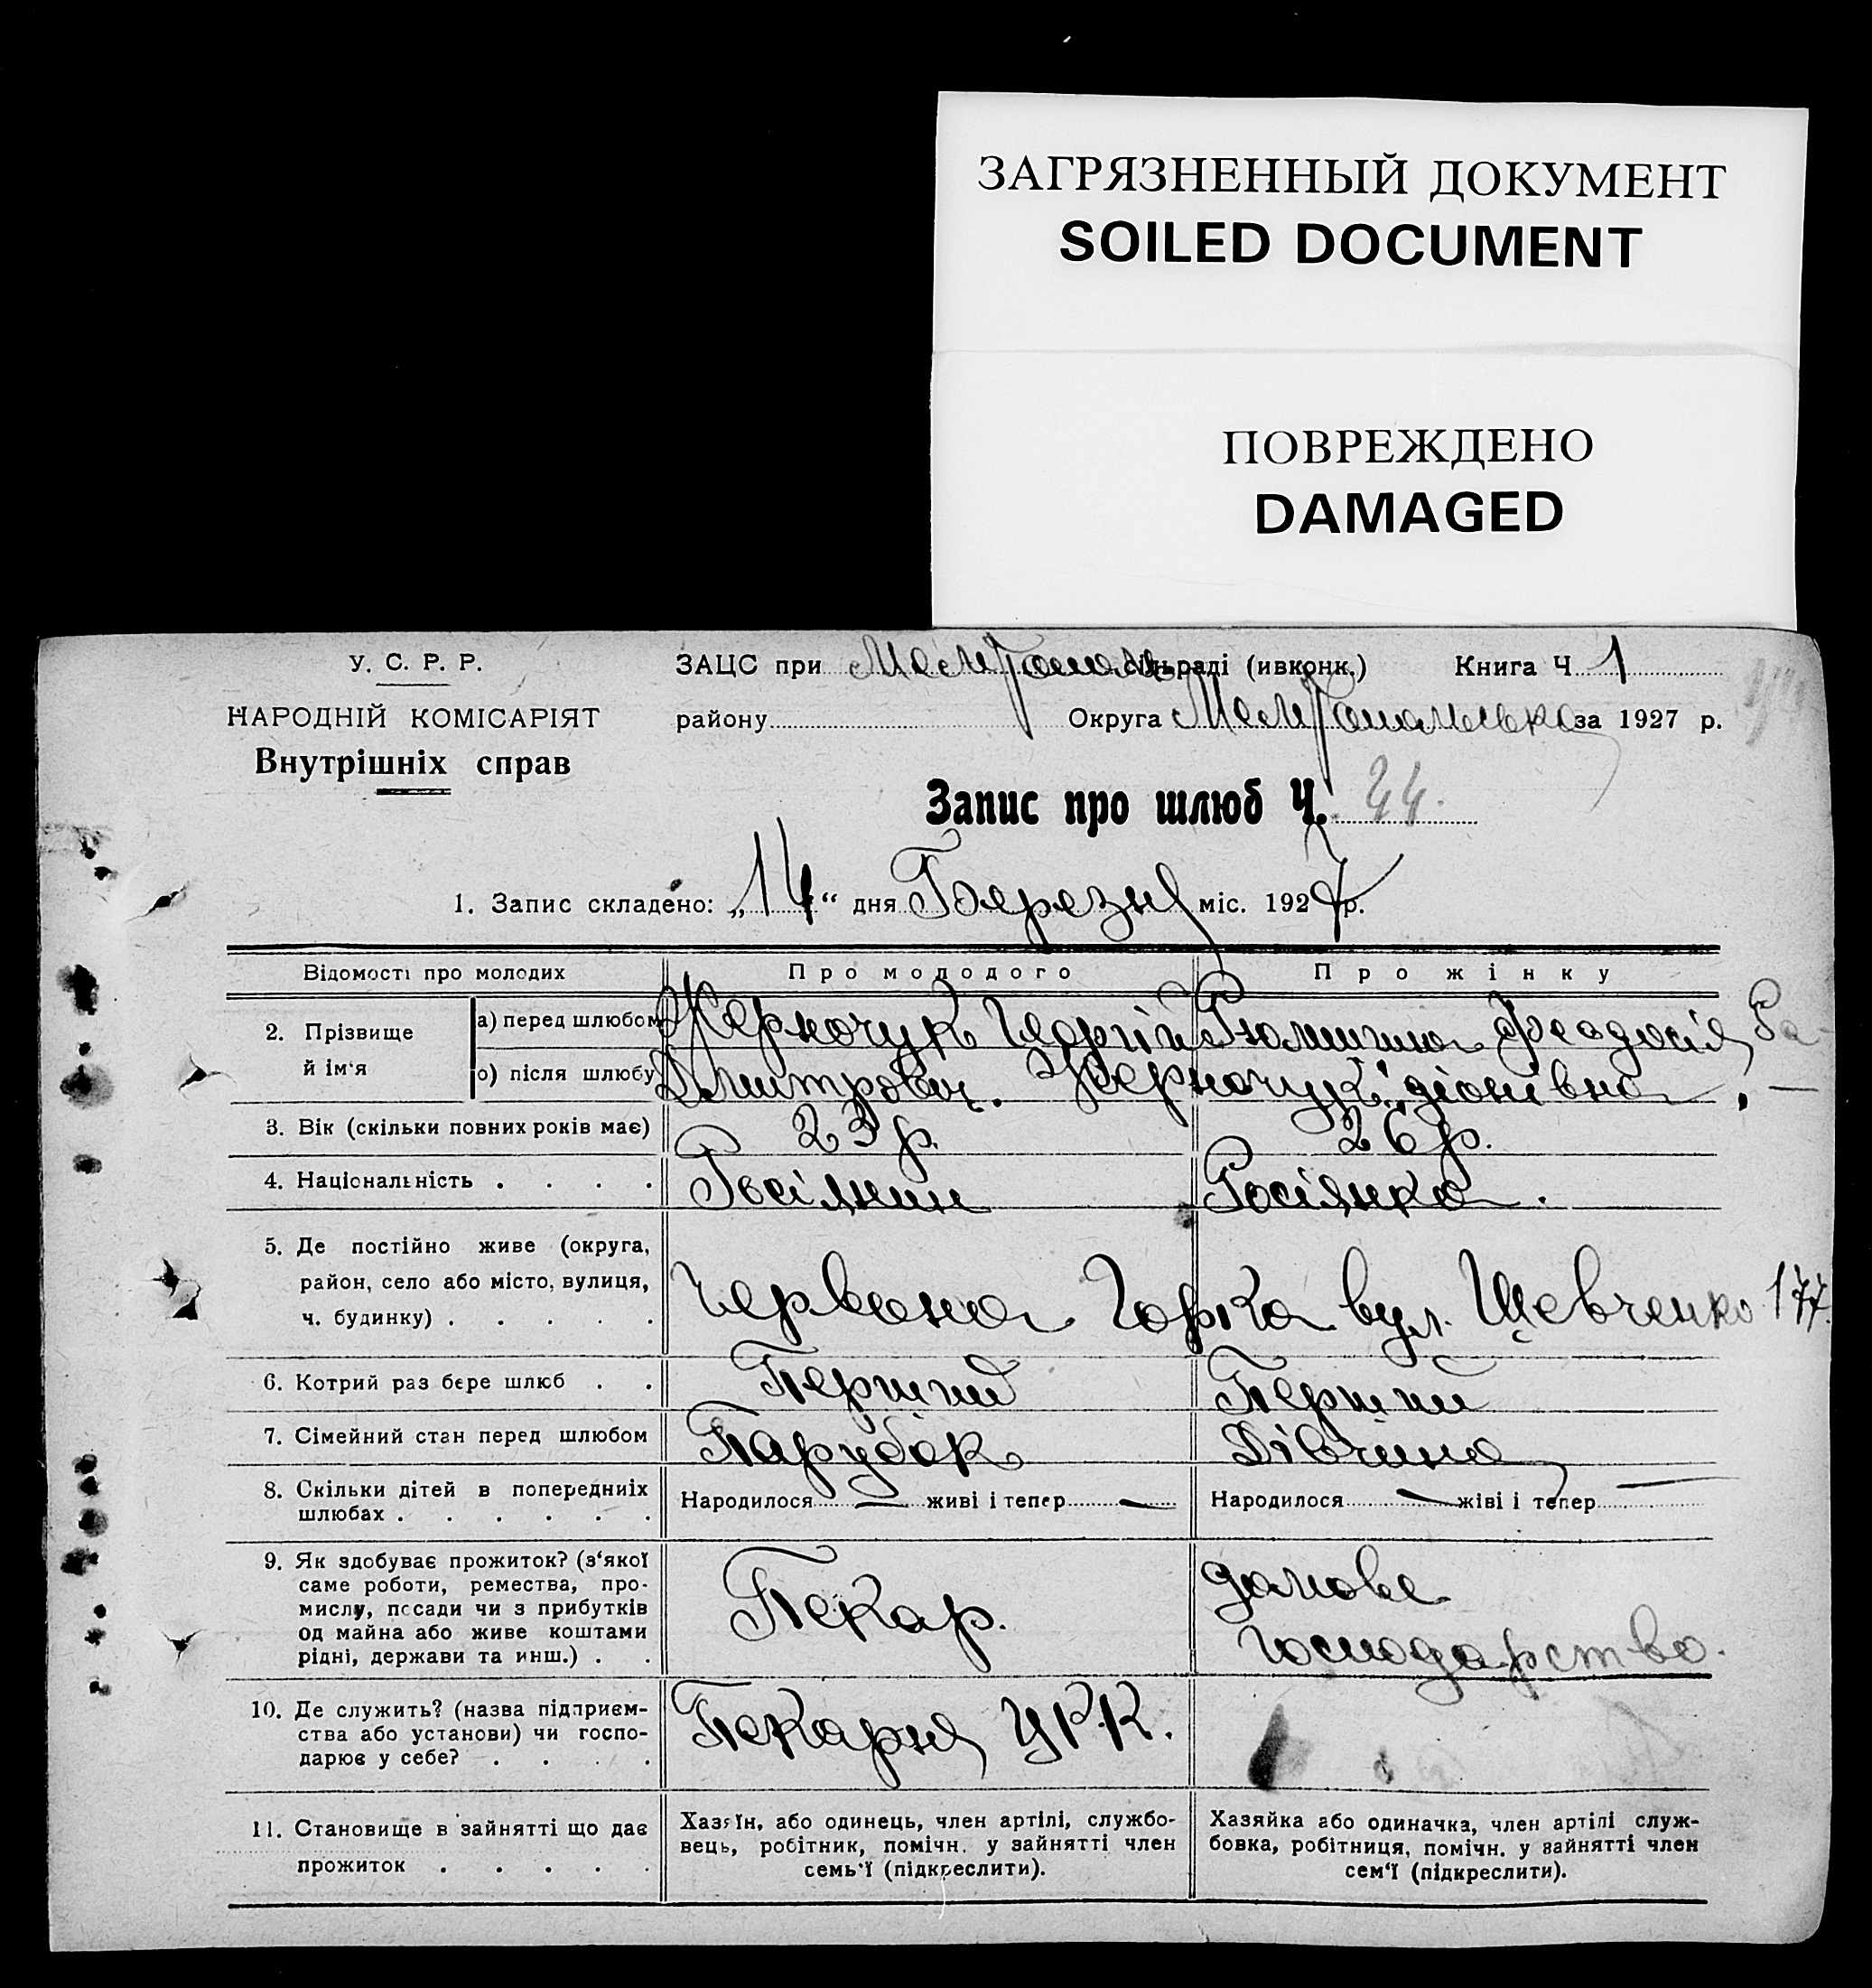 ЗАГРЯЗНЕННЫЙ ДОКУМЕНТ
SOILED DOCUMENT
ПОВРЕЖДЕНО
DAMAGED
У. С. Р. Р.
НАРОДНІЙ КОМІСАРІЯТ
Внутрішніх справ
ЗАЦС при сільраді (ивконк.) Книга Ч 1
району Округа за 1927 р.
Запис про шлюб Ч. 44.
1. Запис складено: „14“ дня Березня міс. 1927 р.
Відомості про молодих Про молодого Про жінку
2. Прізвище й ім'я
а) перед шлюбом Феодосія
о) після шлюбу Дмитрович.
3. Вік (скільки повних років має) 23 р. 26 р.
4. Національність . . . . Росіянин Росіянка.
5. Де постійно живе (округа,
район, село або місто, вулиця,
ч. будинку) . . . . .
Червона Горка вул. Шевченко 177.
6. Котрий раз бере шлюб . . Перший Перший
7. Сімейний стан перед шлюбом Парубок Дівчина
8. Скільки дітей в попередниіх
шлюбах . . . . . .
Народилося — живі і тепер — Народилося — жіві і тепер —
9. Як здобуває прожиток? (з'якої
саме роботи, ремества, про-
мислу, посади чи з прибутків
од майна або живе коштами
рідні, держави та инш.) . .
Пекар.
домове
господарство.
10. Де служить? (назва підприєм-
ства або установи) чи госпо-
дарює у себе? . . . .
Пекарня УРК.
11. Становище в зайнятті що дає
прожиток . . . . .
Хазяїн, або одинець, член артілі, службо-
вець, робітник, помічн. у зайнятті член
семь'ї (підкреслити).
Хазяйка або одиначка, член артілі служ-
бовка, робітниця, помічн. у зайнятті член
сем'ї (підкреслити).